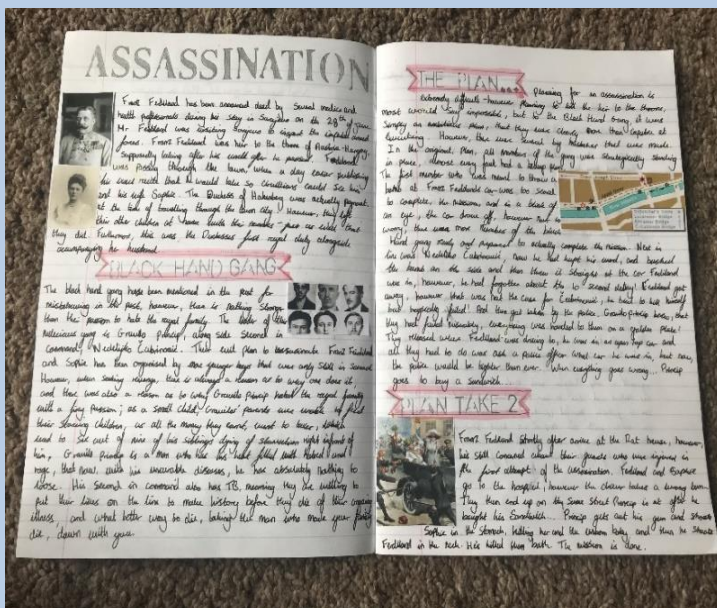 ASSASSINATION
Franz Ferdinand has been announced dead by several medics and
health professionals during his stay in Sarajevo on the 28th of June.
Mr Ferdinand was visiting Sarajevo to inspect the imperial armed
forces. Franz Ferdinand was heir to the throne of Austria-Hungary,
supposedly taking after his uncle after he passed. Ferdinand
was passing through the town, when a day earlier publishing
his exact route that it would take so civilians could see him
and his wife Sophie. The Duchess of Hohenberg was actually pregnant
at the time of travelling through the town city. However, they left
their other children at home with their
they did. Furthermore, this was the Duchess first royal duty alongside
accompanying her husband.
BLACK HAND GANG
The black hand gang have been mentioned in the past for
misbehaving in the past, however, there is nothing stronger
than the passion to hate the royal family. The leader of the
malicious gang is Gravilo Princip, along side second in
command, Nedeljko Cabrinovic. Their evil plan to assassinate Franz Ferdinand
and Sophie has been organised by some younger boys that were only still in school.
However, when seeking revenge, there is always a reason as to why one does it,
and there was also a reason as to why Gravilo Princip hated the royal family
with a fiery passion; as a small child, Gravilo's parents were unable to feed
their starving children, as all the money they earnt, went to taxes, which
lead to six out of nine of his siblings dying of starvation right infront of
him. Gravilo Princip is a man who has his heart filled with hatred and
rage, that now, with his incurable disease, he has absolutely nothing to
loose. His second in command also has TB, meaning they are willing to
put their lives on the line to make history before they die of their
illness, and what better way to die, taking the man who made your family
die, down with you.
THE PLAN...
planning for an assassination is
extremely difficult however planning to kill the heir to the throne,
most would say impossible, but to the Black Hand Gang, it were
simply an ambitious plan, that they was clearly more than capable of
executing. However, this was ruined by mistakes that was made.
In the original plan, all members of the gang was strategically standing
in place, almost every part had a
The first member who was meant to throw a
bomb at Franz Ferdinand's car was too scared
to complete the mission, and in a blink of
an eye, the car drove off. However not to
worry, there was more members of the black
Hand gang ready and prepared to actually complete the mission. Next in
line was Nedeljko Cabrinovic, now he had kept his word, and brushed
the bomb on the side and then threw it straight at the car Ferdinand
was in, however, he had forgotten about the 10 second delay! Ferdinand got
away, however that was not the case for Cabrinovic, he tried to kill himself
but tragically failed! And then got taken by the police. Gravilo Princip knew, that
they had failed miserably, everything was handed to them on a golden plate!
They released where Ferdinand was driving to, he was in an open top car and
all they had to do was ask a police officer what car he was in, but now,
the police would be tighter than ever. When everything goes wrong... Princip
goes to buy a sandwich...
PLAN TAKE 2
Franz Ferdinand shortly after arrive at the
his still concerned about their guards who was injured in
the first attempt of the assassination. Ferdinand and Sophie
go to the hospital, however the driver takes a wrong turn.
They then end up on the same street Princip is at after he
bought his Sandwich... Princip gets out his gun and shoots
Sophie in the stomach, killing her and the unborn baby and then he shoots
Ferdinand in the neck. He's killed them both. The mission is done.